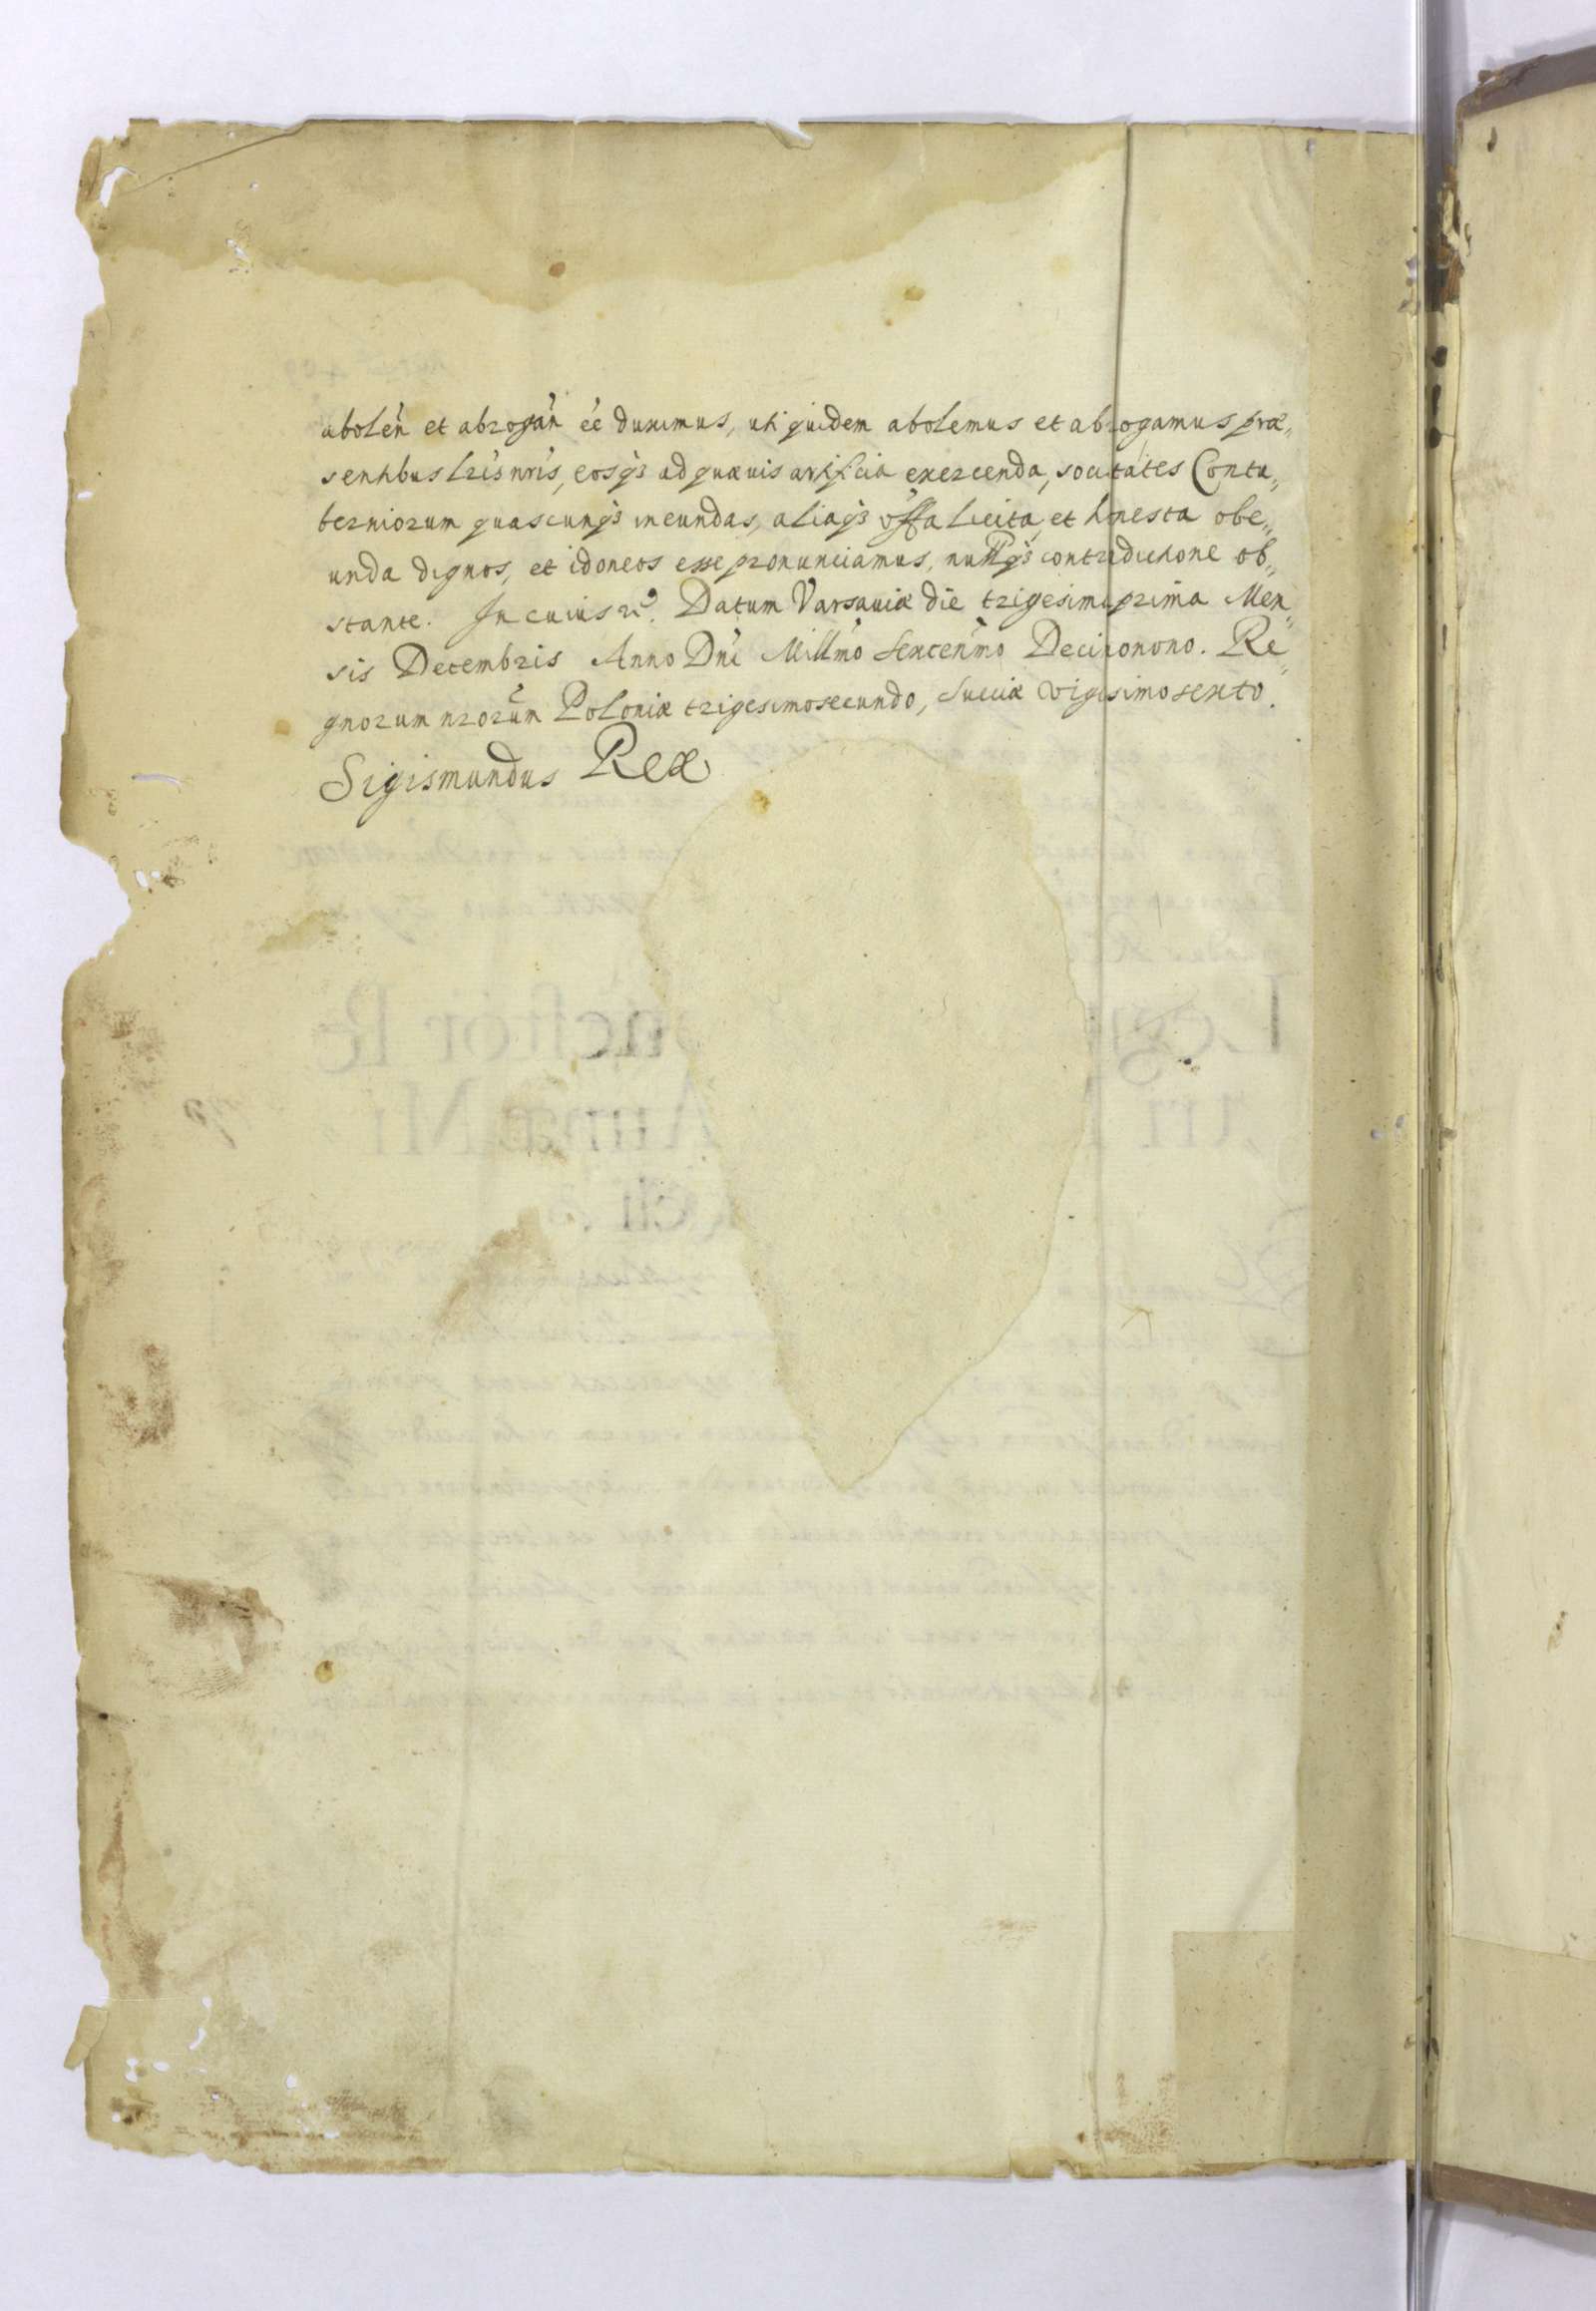 abolen̄ et abrogan̄ eē duximus, uti quidem abolemus et abrogamus præ„
sentibus lris nris, eosq3 ad quæuis artificia exercenda, societates Contu„
berniorum quascunq3 ineundas, aliaq3 offa licita et honesta obe„
unda dignos, et idoneos esse pronunciamus, nullaq3 contradictione ob„
stante. In cuius rei. Datum Varsauiæ die trigesima prima Men„
sis Decembris Anno Dni Millmo Sexcenmo Decimonono. Re„
gnorum nrorum Poloniæ trigesimosecundo, Sueciæ vigesimosexto.
Sigismundus Rex